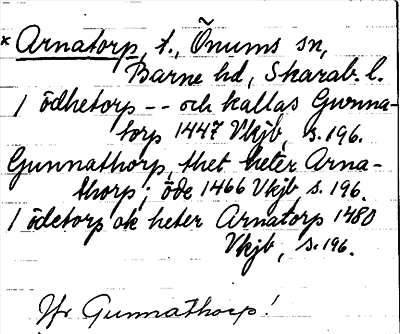 * Arnatorp, t., Önums sn,
Barne hd, Skarab. l.
1 ödhetorp -- och kallas Gunna-
torp 1447 Vkjb, s. 196.
Gunnathorp, thet heter Arna-
thorp; öde 1466 Vkjb s. 196.
1 ödetorp ok heter Arnatorp 1480
Vkjb, s. 196.
Jfr Gunnathorp!